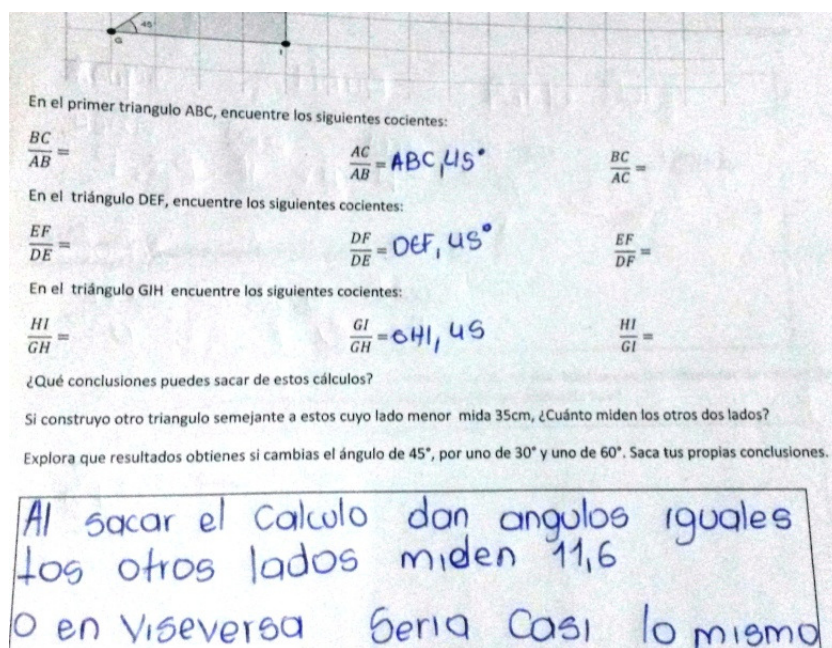 45
G
I
En el primer triangulo ABC, encuentre los siguientes cocientes:
BC/AB = AC/AB = ABC, 45° BC/AC =
En el triángulo DEF, encuentre los siguientes cocientes:
EF/DE = DF/DE = DEF, 45° EF/DF =
En el triángulo GIH encuentre los siguientes cocientes:
HI/GH = GI/GH = GHI, 45 HI/GI =
¿Qué conclusiones puedes sacar de estos cálculos?
Si construyo otro triangulo semejante a estos cuyo lado menor mida 35cm, ¿Cuánto miden los otros dos lados?
Explora que resultados obtienes si cambias el ángulo de 45°, por uno de 30° y uno de 60°. Saca tus propias conclusiones.
Al sacar el calculo dan angulos iguales
los otros lados miden 11,6
o en viseversa seria casi lo mismo